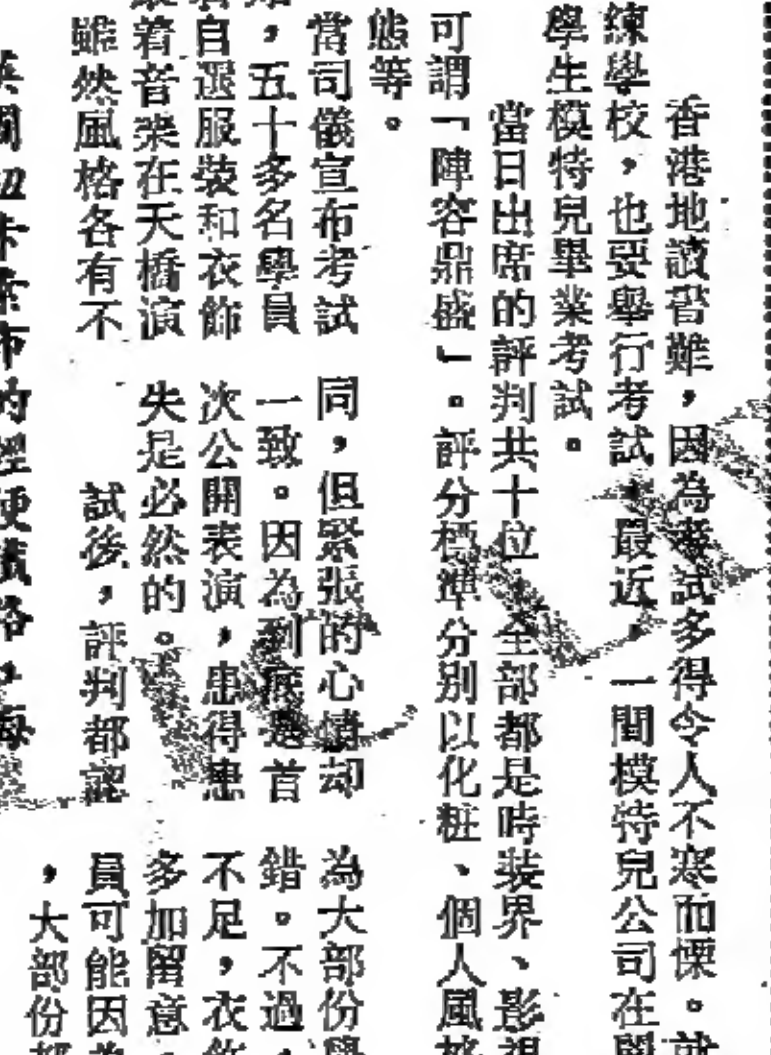 香港地讀書難，因為考試多得令人不寒而慄。就
練學校，也要舉行考試。最近，一間模特兒公司在開
學生模特兒畢業考試。
當日出席的評判共十位，全部都是時裝界、影視
可謂「陣容鼎盛」。評分標準分別以化粧、個人風格
態等。
當司儀宣布考試
，五十多名學員
着自選服裝和衣飾
着音樂在天橋演
雖然風格各有不
同，但緊張的心情却
一致。因為到底是首
次公開表演，患得患
失是必然的。
試後，評判都認
為大部份學
錯。不過，
不足，衣飾
多加留意，
員可能因為
，大部份都
的
，海